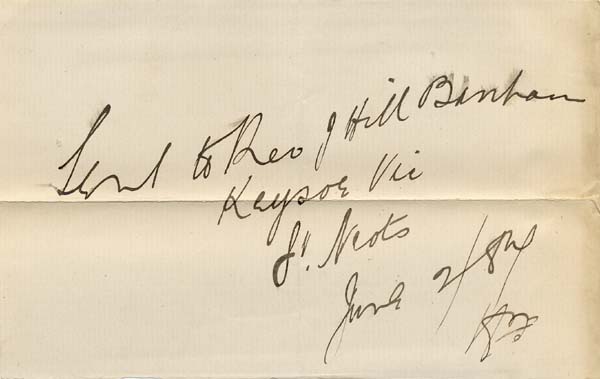 Sent to Rev J Hill
Keysoe Vic
St. Neots
June 2/84